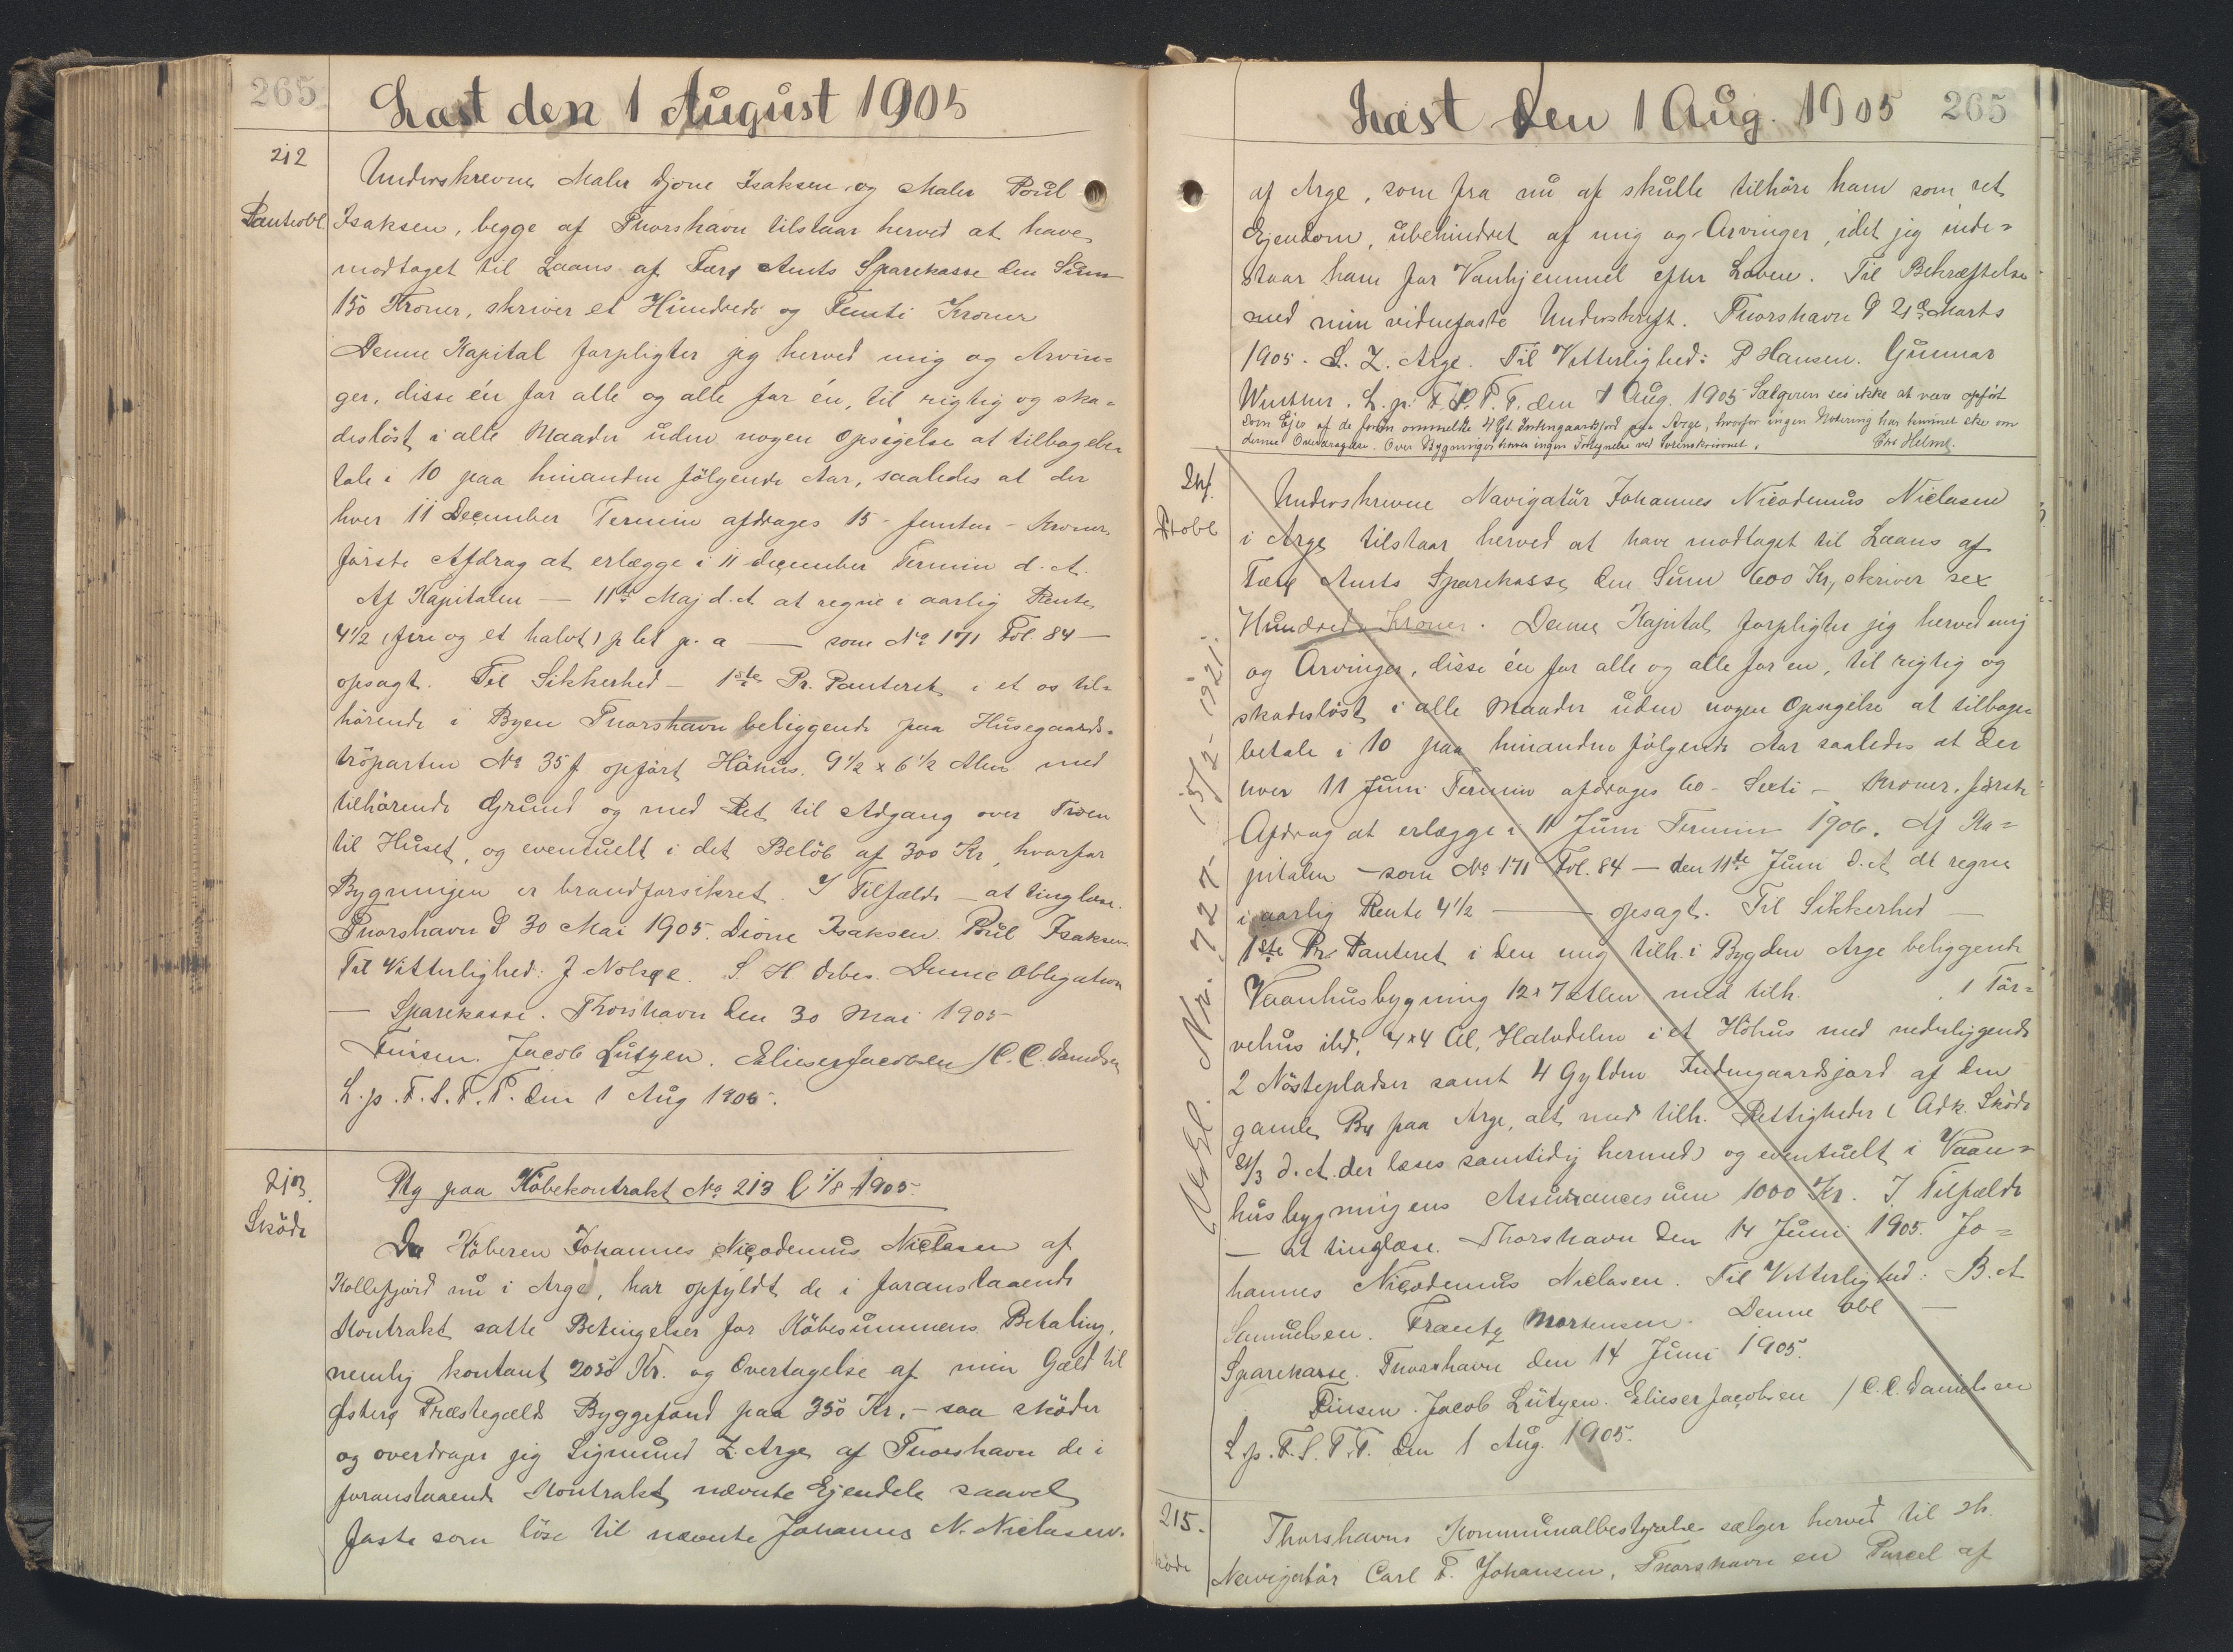 265
Læst den 1 August 1905
212
Panteobl.
Underskrevne Maler Djone Isaksen og Maler Poul
Isaksen, begge af Thorshavn tilstaar herved at have
modtaget til Laans af Færø Amts Sparekasse den Sum
150 Kroner, skriver et Hundrede og Femti Kroner
Denne Kapital forpligter jeg herved mig og Arvin=
ger, disse én for alle og alle for én, til rigtig og ska=
desløst i alle Maader uden nogen Opsigelse at tilbagebe=
tale i 10 paa hinanden følgende Aar, saaledes at der
hver 11 December Termin afdrages 15 - femten - Kroner,
første Afdrag at erlægge i 11 december Termin d. A.
Af Kapitalen — 11te Maj d. A at regne i aarlig Rente
4 1/2 (fire og et halvt) p Ct p. a — som No 171 Fol. 84 —
opsagt. Til Sikkerhed — 1ste Pr. Panteret i et os til=
hørende i Byen Thorshavn beliggende paa Husegaards=
trøparten No 35 f opført Hånus. 9 1/2 x 6 1/2 Alen med
tilhørende Grund og med Ret til Adgang over Trøen
til Huset, og eventuelt i det Beløb af 300 Kr, hvorfor
Bygningen er brandforsikret. I Tilfælde — at tinglæse.
Thorshavn d 30 Mai 1905. Dione Isaksen. Poul Isaksen
Til Vitterlighed: J Nolsøe. S H Debes. Denne Obligation
— Sparekasse. Thorshavn den 30 Mai 1905
Finsen. Jacob Lützen. Elieser Jacobsen / C. C. Danielsen
L. p. F. S. T. T. den 1 Aug 1905.
213
Skøde
Ptg paa Købekontrakt No 213 l 1/8 1905.
Da Køberen Johannes Nicodemus Niclasen af
Kollefjord nu i Arge, har opfyldt de i foranstaaende
Kontrakt satte Betingelser for Købesummens Betaling,
nemlig kontant 2050 Kr. og Overtagelse af min Gæld til
Østerø Præstegælds Byggefond paa 350 Kr. - saa skøder
og overdrager jeg Sigmund Z. Arge af Thorshavn de i
foranstaaende Kontrakt nævnte Ejendele saavel
faste som løse til nævnte Johannes N. Niclasen.
Læst den 1 Aug. 1905
265
af Arge, som fra nu af skulle tilhøre ham som ret
Ejendom, ubehindret af mig og Arvinger, idet jeg inde=
staar ham for Vanhjemmel efter Loven. Til Bekræftelse
med min vidnefaste Underskrift. Thorshavn d 21de Marts
1905. S. Z. Arge. Til Vitterlighed: P Hansen. Gunnar
Winther. L. p. F. S. T. T. den 1 Aug. 1905 Sælgeren ses ikke at være opført
som Ejer af de foran ommeldte 4 Gl. Indengaardsjord paa Arge, hvorfor ingen Notering har kunnet ske om
denne Overdragelse. Over Bygninger haves ingen Fortegnelse ved Sorenskriveriet.
Chr Helms.
214.
Ptobl
Underskrevne Navigatør Johannes Nicodemus Niclasen
i Arge tilstaar herved at have modtaget til Laans af
Færø Amts Sparekasse den Sum 600 Kr, skriver sex
Hundrede Kroner. Denne Kapital forpligter jeg herved mig
og Arvinger, disse én for alle og alle for en, til rigtig og
skadesløst i alle Maader uden nogen Opsigelse at tilbage=
betale i 10 paa hinanden følgende Aar saaledes at der
hver 11 Juni Termin afdrages 60 - Sexti - Kroner, første
Afdrag at erlægge i 11 Juni Termin 1906. Af Ka=
pitalen — som No 171 Fol. 84 — den 11te Juni d. A at regne
i aarlig Rente 4 1/2 — opsagt. Til Sikkerhed —
1ste Pr. Panteret i den mig tilh. i Bygden Arge beliggende
Vaanhusbygning 12 x 7 Alen med tilh. , 1 Tör=
vehus ibd, 4x4 Al, Halvdelen i et Höhus med nedenliggende
2 Nöstepladser samt 4 Gylden Indengaardsjord af den
gamle By paa Arge, alt med tilh. Rettigheder (Adk. Skøde
21/3 d. A. der læses samtidig hermed) og eventuelt i Vaan=
husbygningens Assurancesum 1000 Kr. I Tilfælde
— at tinglæse. Thorshavn den 14 Juni 1905. Jo=
hannes Nicodemus Niclasen. Til Vitterlighed: B. A
Samuelsen. Frantz Mortensen. Denne Obl —
Sparekasse. Thorshavn den 14 Juni 1905.
Finsen. Jacob Lützen. Elieser Jacobsen / C. C. Danielsen
L. p. F. S. T. T. den 1 Aug. 1905.
Nr. 727 - 15/2 - 1921.
215.
Thorshavns Kommunalbestyrelse sælger herved til Hr
Navigatør Carl F. Johansen, Thorshavn en Parcel af